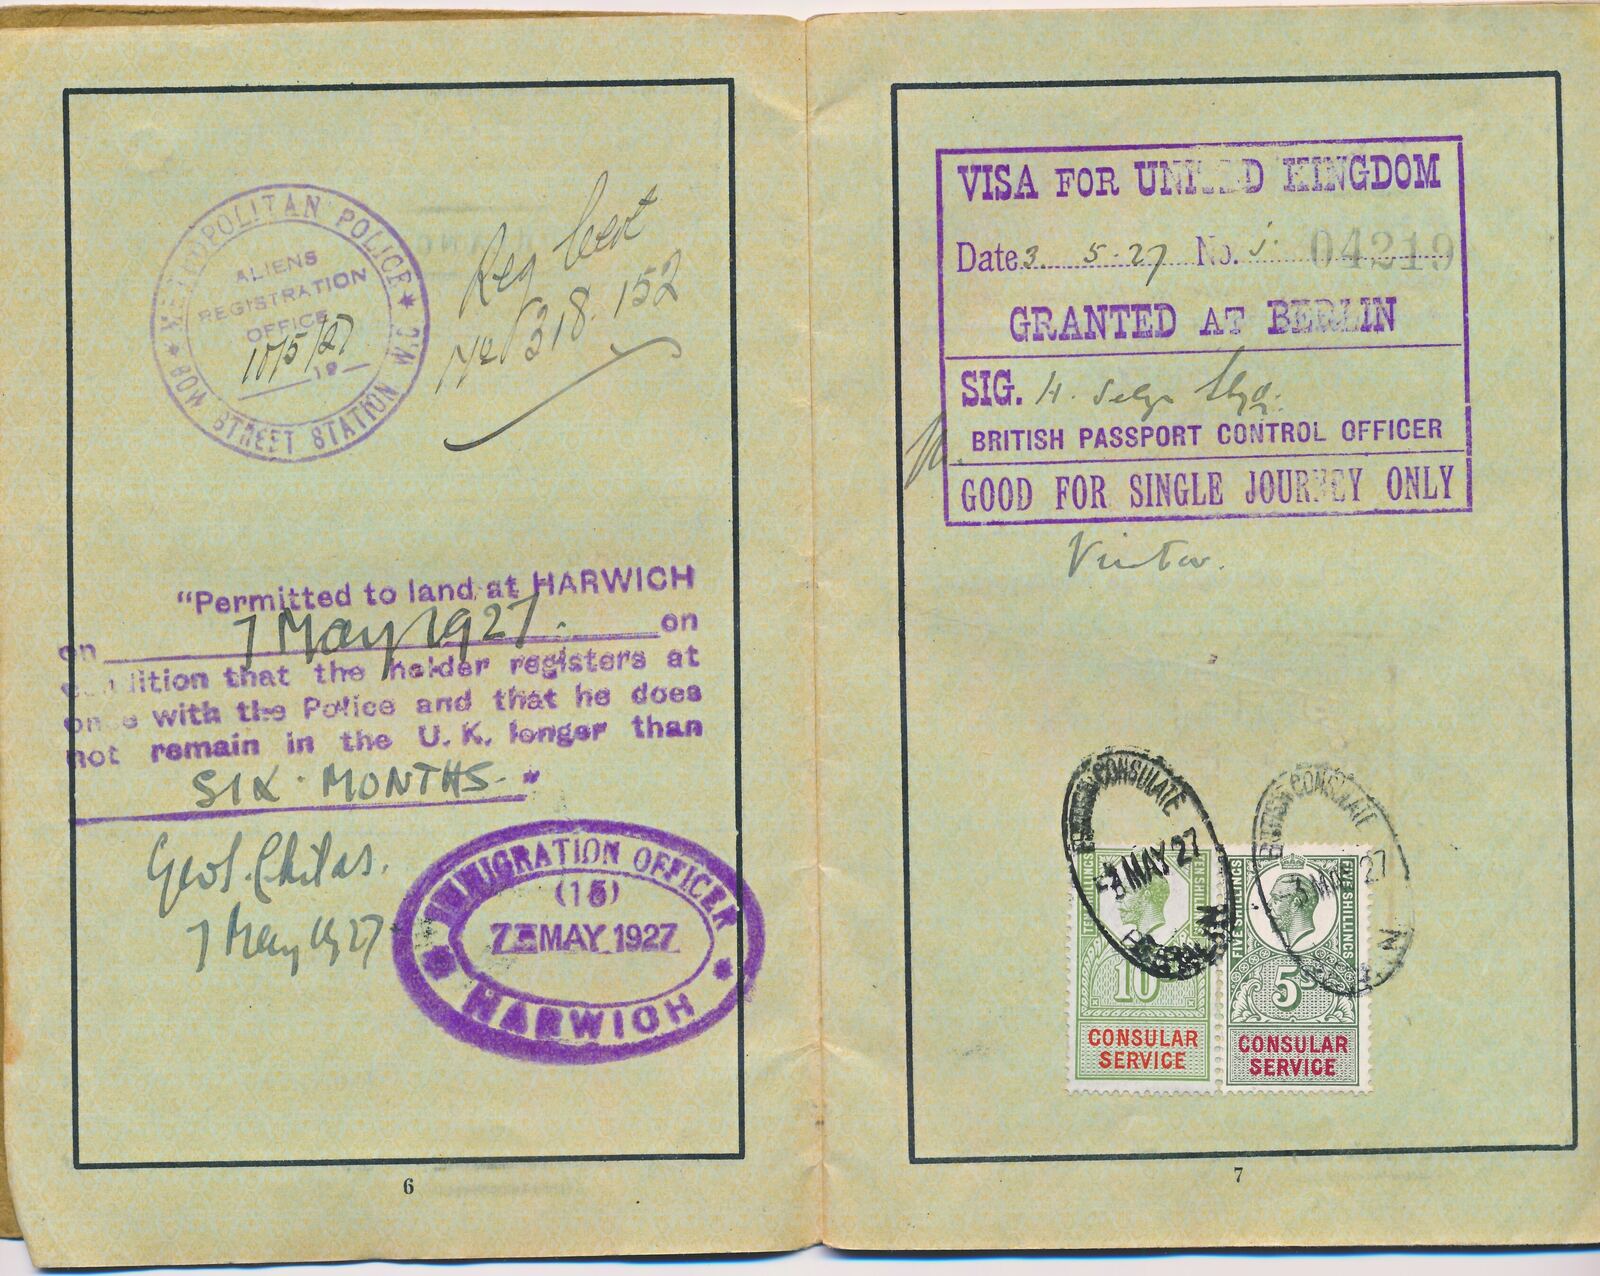 METROPOLITAN POLICE
ALIENS
REGISTRATION
OFFICE
10/5/27
19
BOW STREET STATION W.C.
Reg Cert
No 318.152
"Permitted to land at HARWICH
on 7 May 1927. on
condition that the holder registers at
once with the Police and that he does
not remain in the U.K. longer than
SIX MONTHS.
7 May 1927
IMMIGRATION OFFICER
(15)
7 MAY 1927
HARWICH
6
VISA FOR UNITED KINGDOM
Date 3. 5. 27 No. 04219
GRANTED AT BERLIN
SIG. H.
BRITISH PASSPORT CONTROL OFFICER
GOOD FOR SINGLE JOURNEY ONLY
Visitor.
BRITISH CONSULATE
3 MAY 27
BERLIN
TEN SHILLINGS
TEN SHILLINGS
10
CONSULAR
SERVICE
BRITISH CONSULATE
3 MAY 27
BERLIN
FIVE SHILLINGS
FIVE SHILLINGS
5S
CONSULAR
SERVICE
7